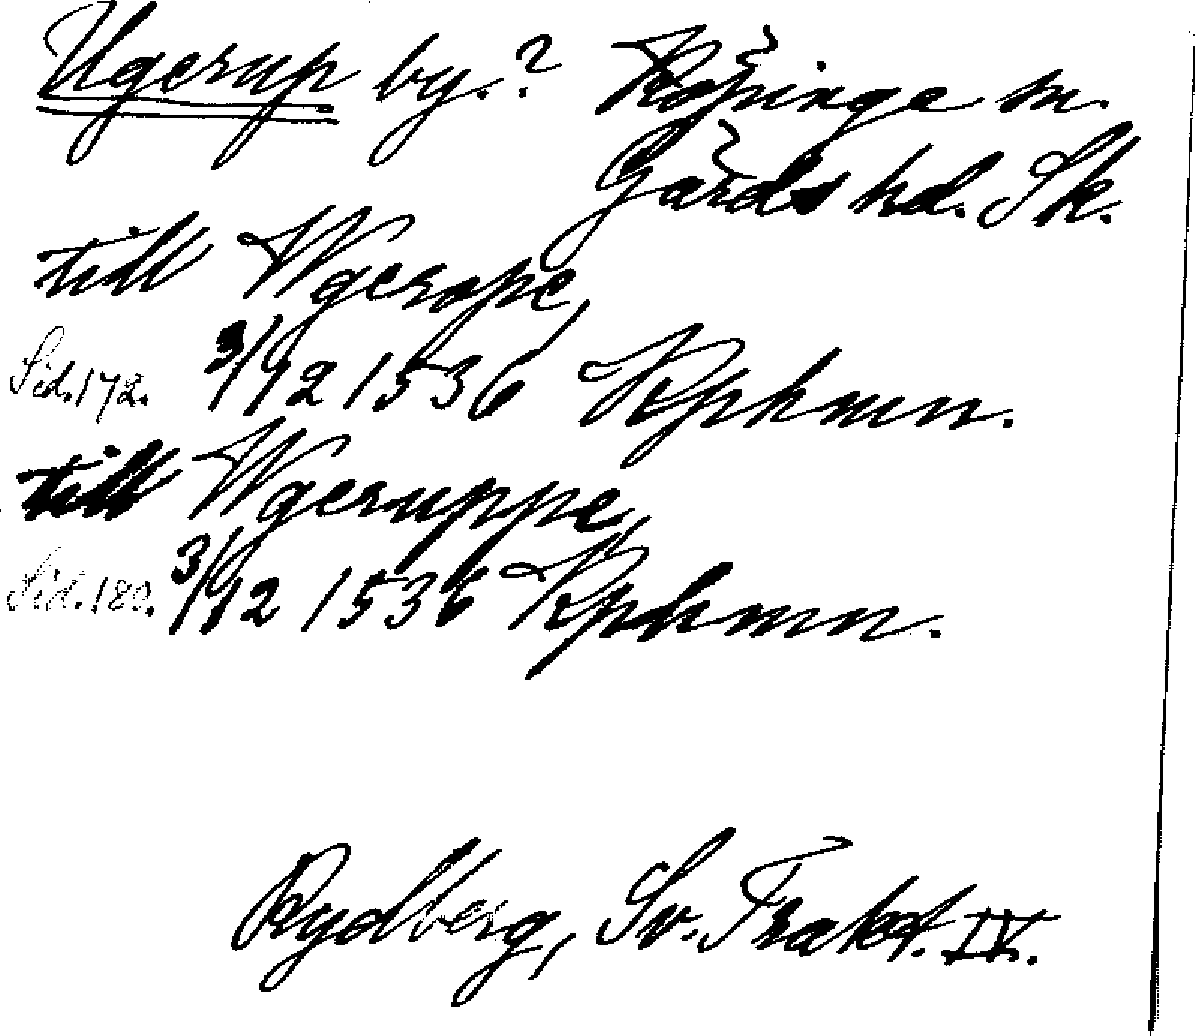 Ugerup by.? Köpinge sn.
Gärds hd. Sk.
till Wgerope,
Sid. 172. 3/12 1536 Kphmn.
till Wgeruppe,
Sid. 180. 3/12 1536 Kphmn.
Rydberg, Sv. Trakt. IV.